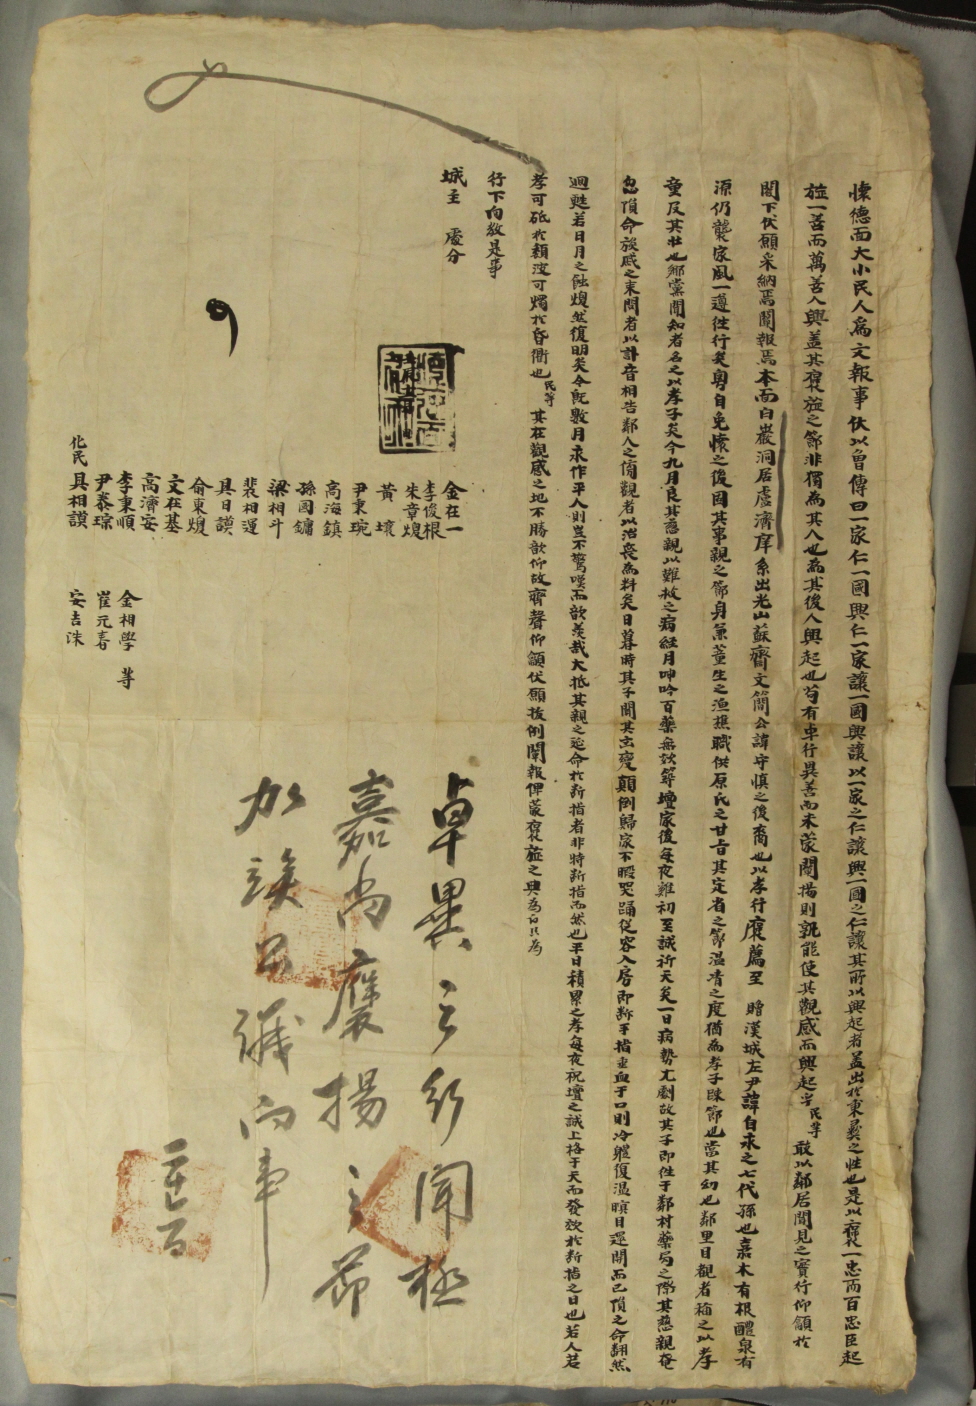 懷德面大小民人爲文報事伏以魯傳曰一家仁一國興仁一家讓一國興讓以一家之仁讓興一國之仁讓其所以興起者盖出於秉彛之性也是以褒一忠而百忠臣起
旌一善而萬善人興盖其褒旌之節非獨為其人也為其後人興起也苟有卓行異善而未蒙闡揚則孰能使其觀感而興起乎民等敢以鄰居聞見之實行仰籲於
閤下伏願采納焉闡報焉本面白巖洞居盧濟庠系出光山蘇齋文簡公諱守愼之後裔也以孝行褒薦至 贈漢城左尹諱自求之七代孫也嘉木有根醴泉有
源仍襲家風一遵徃行矣粤自免懷之後固其事親之節身兼董生之漁樵職供原氏之甘旨其定省之節温凊之度猶為孝子踈節也當其幼也鄰里目觀者稱之以孝
童及其壯也鄉黨聞知者名之以孝子矣今九月良其慈親以難救之病経月呻吟百藥無效築壇家後每夜雞初至誠祈天矣一日病勢尤劇故其子即徃于鄰村藥局之際其慈親奄
忽隕命族戚之來問者以訃音相告鄰人之傍觀者以治喪為料矣日暮時其子聞其玄變顚倒歸家不暇哭踊従容入房即斷手指垂血于口則冷軆復温瞑目還開而已隕之命翻然
廻甦若日月之蝕煥然復明矣今旣數月永作平人則豈不驚嘆而歆羨哉大抵其親之延命於斷指者非特斷指而然也平日積累之孝每夜祝壇之誠上格于天而發效於斷指之日也若人若
孝可砥於頹波可燭於昏衢也民等其在觀感之地不勝歆仰故齊聲仰籲伏願拔例闡報俾蒙褒旌之典為白只為
行下向敎是事
城主 處分
金在一
李俊根
朱章煥
黃壤
尹秉琬
高海鎮
孫國鏞
梁相斗
裴相運
具日謨
俞東煥
文在基
高濟安
李秉順 金相學 等
尹泰琮 崔元喜
化民 具相謨 安吉洙
卓異之行聞極
嘉尚褒揚之節
加誒公議向事